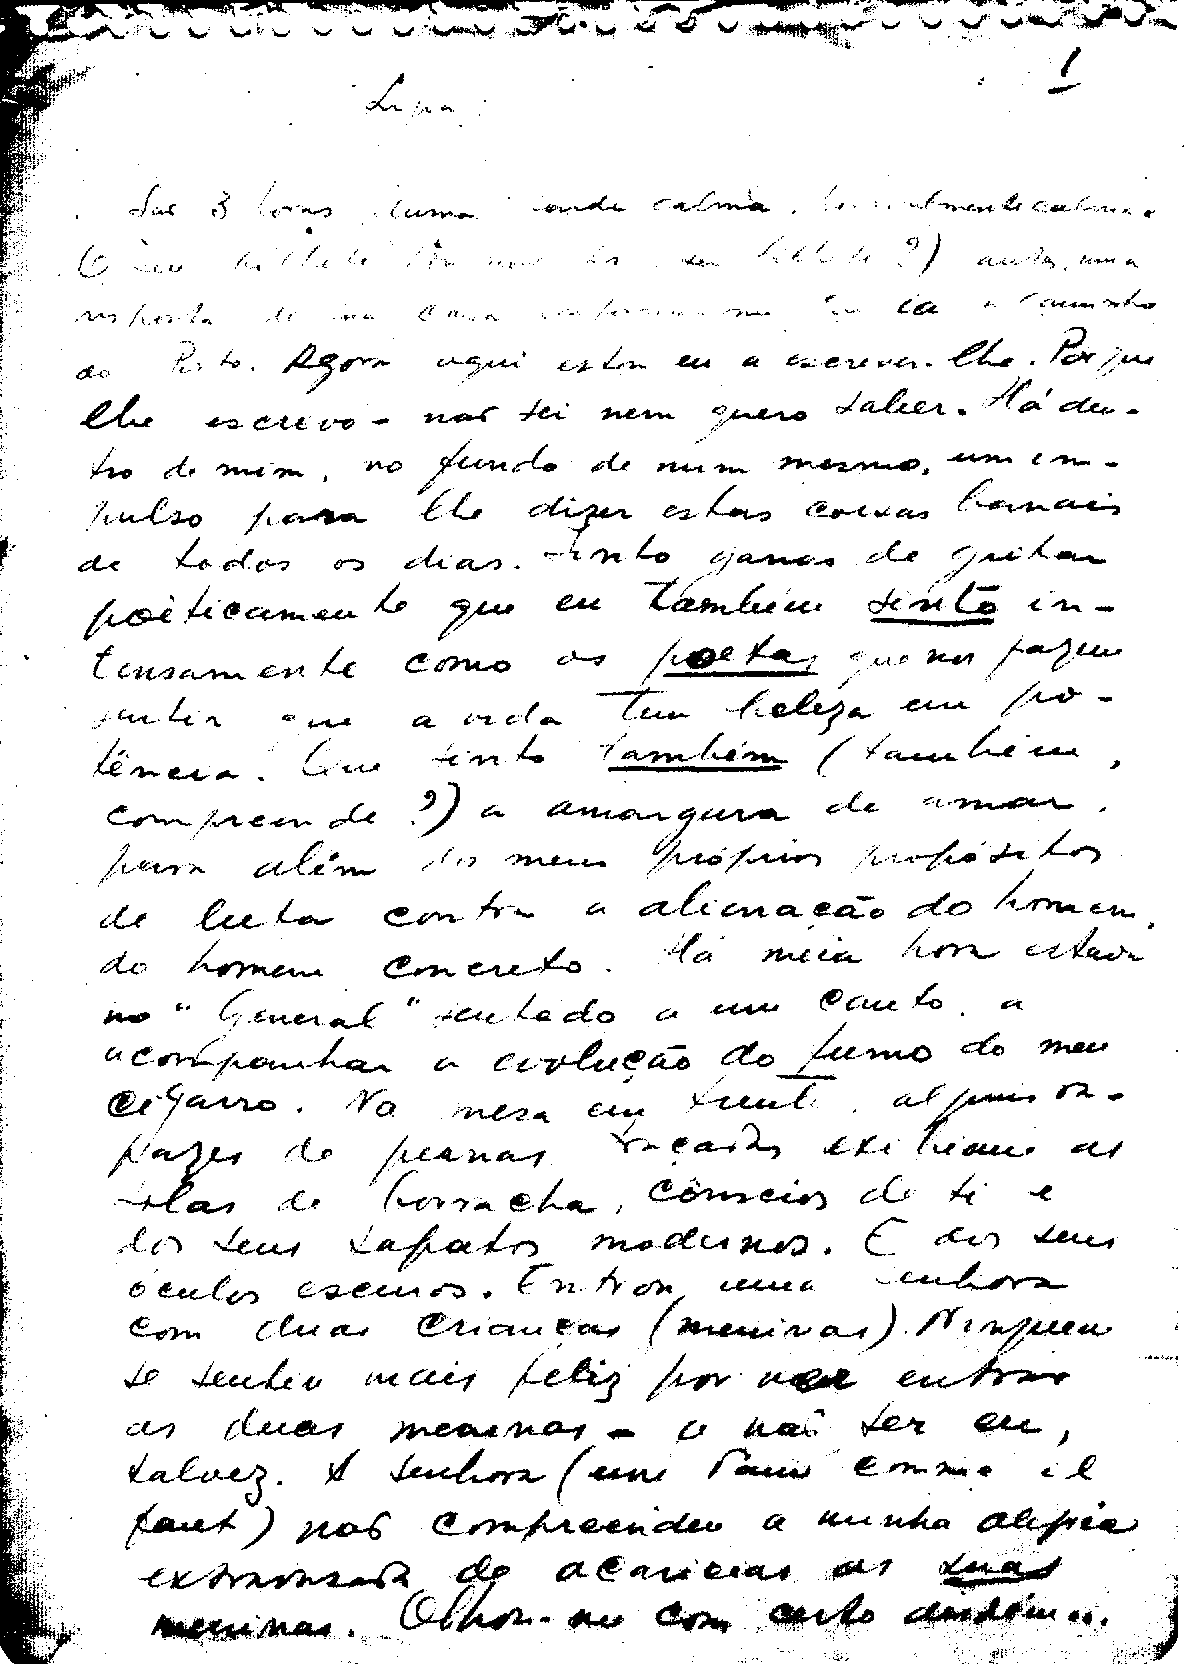 1
Lupa
São 3 horas duma tarde calma, terrivelmente calma.
O seu bilhete (ou não é seu bilhete?) antes, uma
resposta de sua casa informou-me ia a caminho
do Porto. Agora aqui estou eu a escrever-lhe. Porque
lhe escrevo - não sei nem quero saber. Há den-
tro de mim, no fundo de mim mesmo, um im-
pulso para lhe dizer estas coisas banais
de todos os dias. Sinto ganas de gritar
poèticamente que eu também sinto in-
tensamente como os poetas que nos fazem
sentir que a vida tem beleza em po-
tência. Que sinto também (também,
compreende?) a amargura de amar,
para além dos meus próprios propósitos
de luta contra a alienação do homem,
do homem concreto. Há meia hora estava
no "General" sentado a um canto, a
acompanhar a evolução do fumo do meu
cigarro. Na mesa em frente, alguns ra-
pazes de pernas traçadas exibiam as
solas de borracha, cônscios de si e
dos seus sapatos modernos. E dos seus
óculos escuros. Entrou uma senhora
com duas crianças (meninas). Ninguém
se sentiu mais feliz por ver entrar
as duas meninas - a não ser eu,
talvez. A senhora (une dame comme il
faut) não compreendeu a minha alegria
extravasada de acariciar as suas
meninas. Olhou-me com certo desdém.